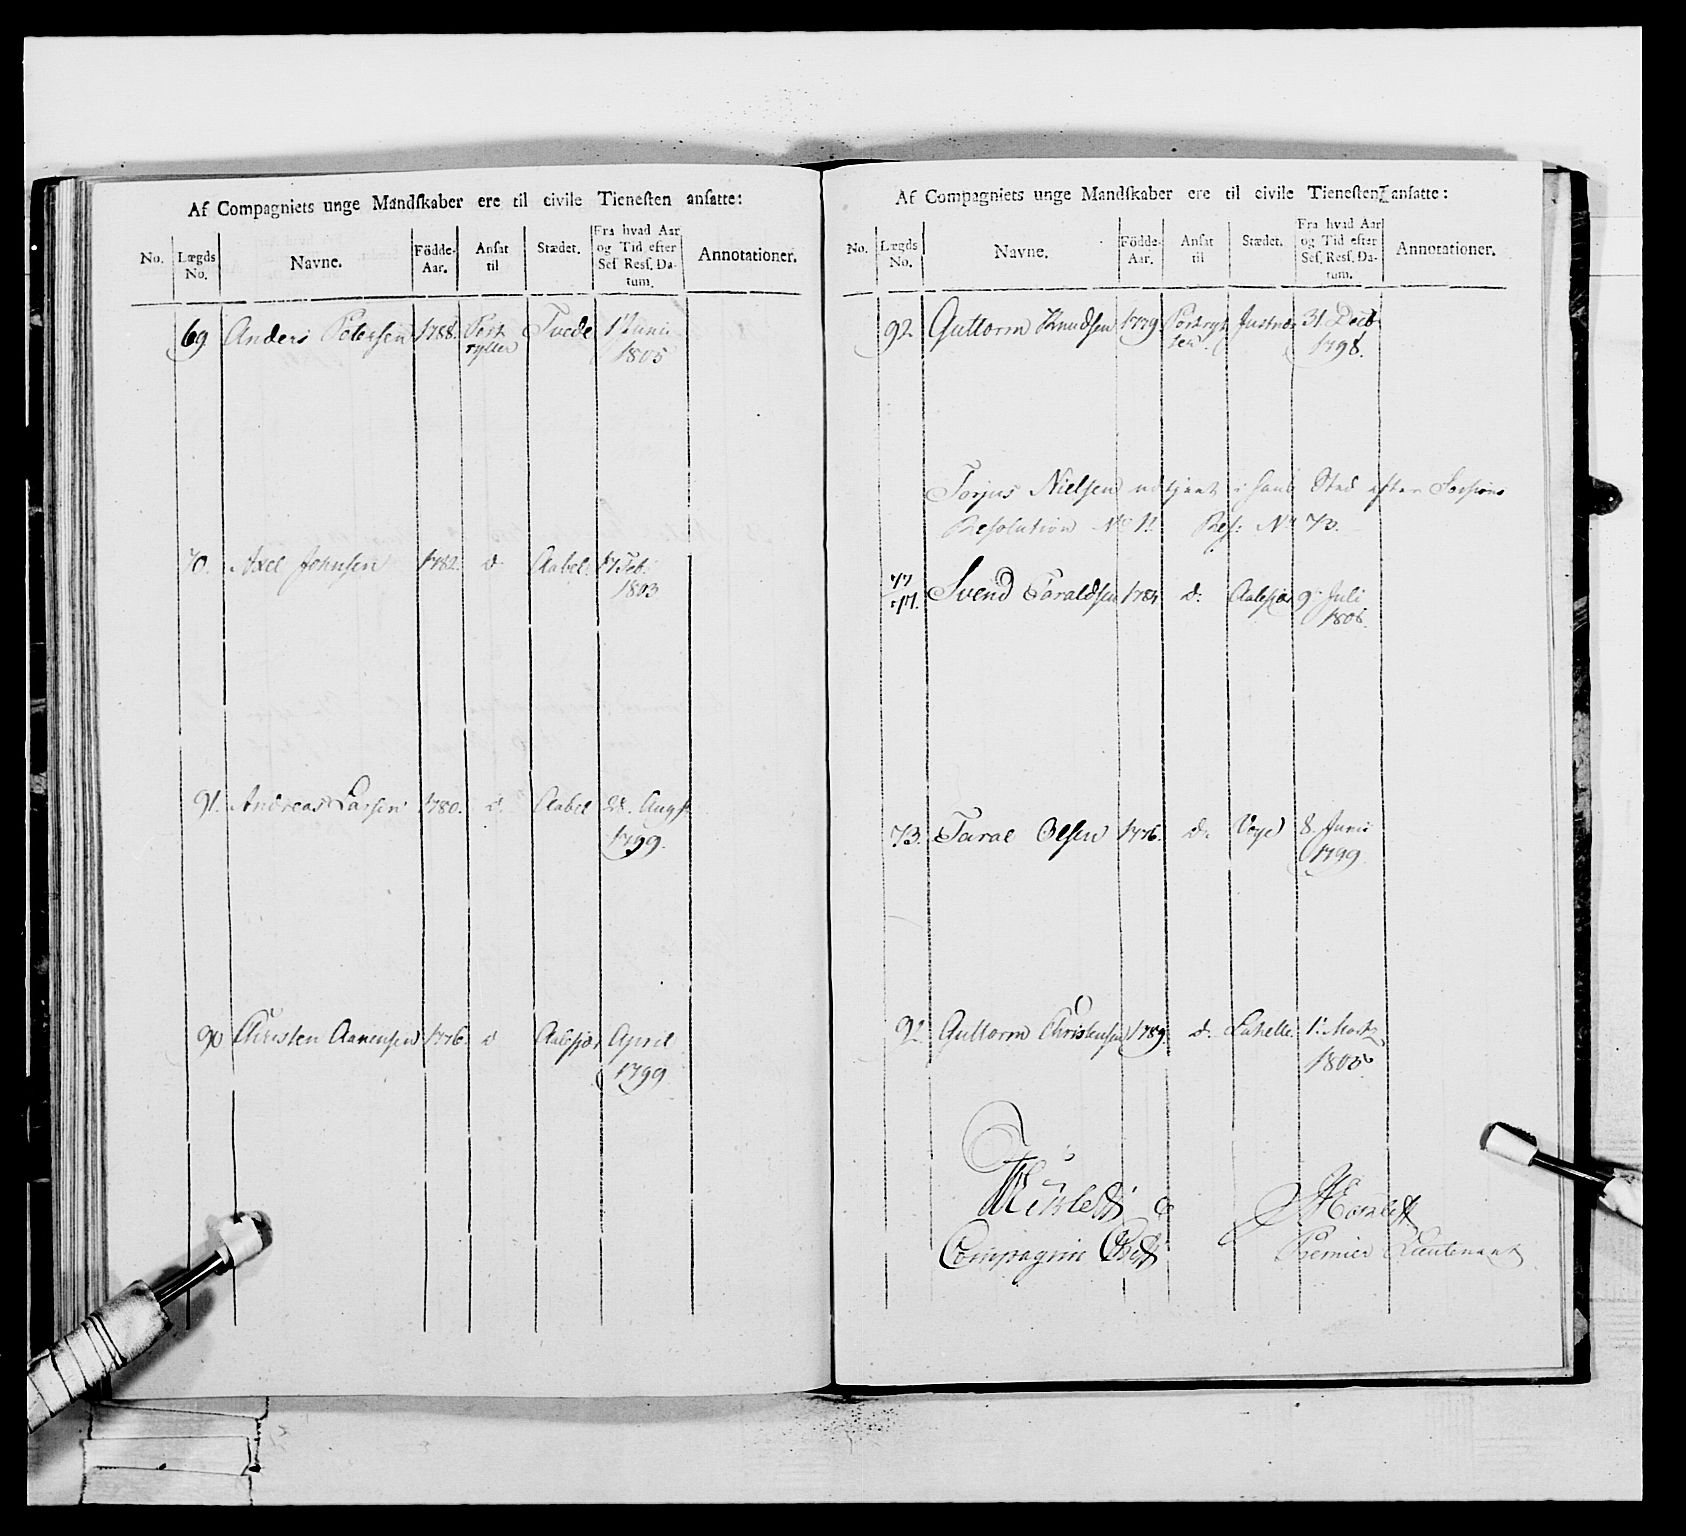 Af Compagniets unge Mandſkaber ere til civile Tieneſten anſatte:
No. Lægds No. Navne. Födde-Aar. Anſat til Stædet. Fra hvad Aar og Tid efter Seſ. Reſſ. Datum. Annotationer.
69 Anders Petersen 1788. Post rytter Tvede 1 Junii 1805
70. Axel Johnsen 1782. d Aabel. 17 Feb. 1803
91. Andreas Larsen 1780. d. Aabel 28. Augst 1799.
90 Christen Aanensen 1776. d Aalefjær April 1799
Af Compagniets unge Mandſkaber ere til civile Tieneſten anſatte:
No. Lægds No. Navne. Födde-Aar. Anſat til Stædet. Fra hvad Aar og Tid efter Seſ. Reſſ. Datum. Annotationer.
92 Guttorm Knudsen 1779 Postryt ter. Justnæs 31. Decb 1798.
Torjus Nielsen udtjent i hans Sted efter Sessions
Resolution No 11. Res: No 70.
77 Svend Taraldsen 1784 d. Aalefjær 9 Juli 1808.
73. Taral Olsen 1776. d. Voje 8. Junii 1799
92. Guttorm Christensen 1789. d. 1. Martz 1805
Compagnie Chef
Premier Lieutenant